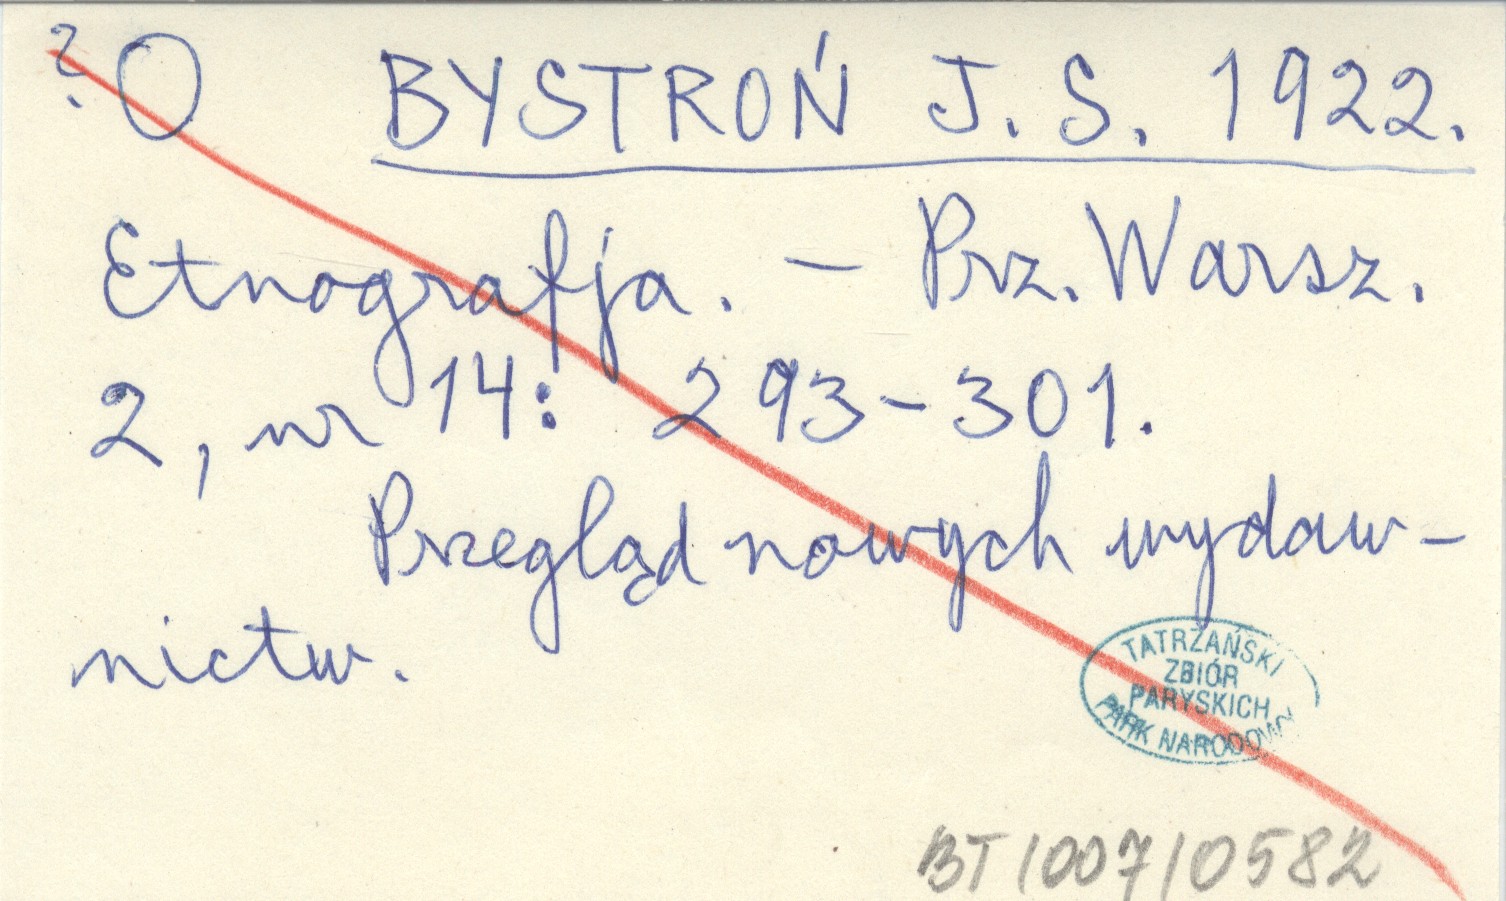 ? O BYSTROŃ J. S. 1922.
Etnografja. – Prz. Warsz.
2, nr 14: 293–301.
Przegląd nowych wydaw-
nictw.
TATRZAŃSKI
ZBIÓR
PARYSKICH
PARK NARODOWY
BT/007/0582